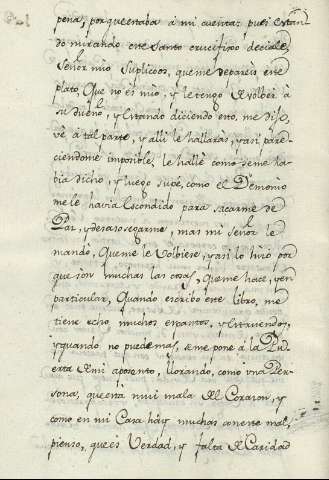 pena, porque estaba à mi cuenta: pues estan
do mirando este santo crucifixo deciale,
Señor mio suplicoos, que me depareis este
plato, Que no es mio, y le tengo â volber â
su dueño, y Estando diciendo esto, me dixo,
vè â tal parte, y alli le hallaràs, y asi pare-
ciendome imposible, le hallè como se me ha-
bia dicho, y luego supe, como el Demonio
me le havia Escondido para sacarme de
Paz, y desasosegarme, mas mi Señor le
mandò, Que me le volbiese, y asi lo hizo por
que son muchas las cosas, Que me hace, y en
particular, Quando escribo este libro, me
tiene echo muchos espantos, y Estruendos,
y quando no puede mas, se me pone â la Pu
erta de mi aposento, llorando, como vna Per-
sona, que està mui mala del Corazon, y
como en mi Casa hay muchas con este mal,
pienso, que es Verdad, y falta de Caridad